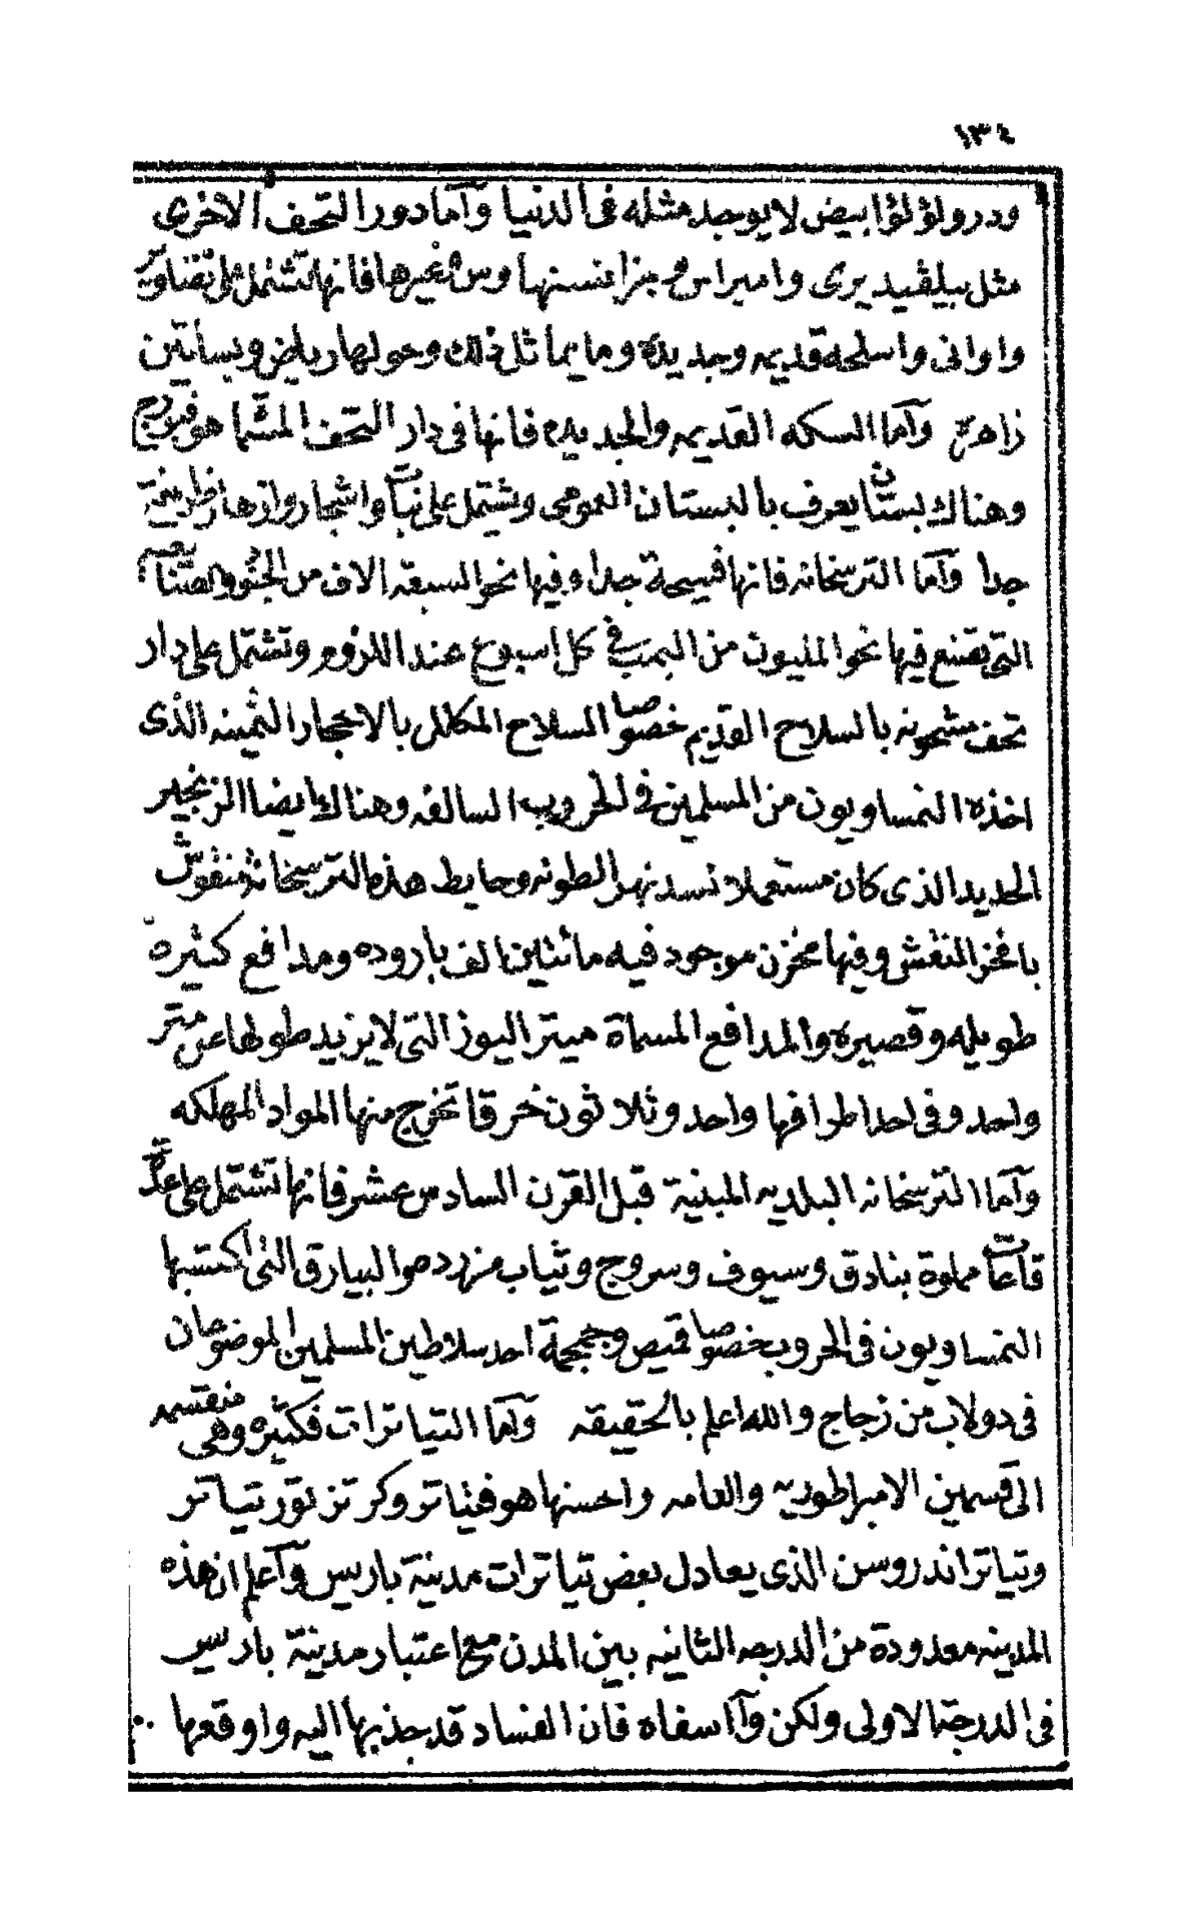 ١٣٤
ودر ولؤلؤ ابيض لا يوجد مثله فى الدنيا وآما دور التحف الاخرى
مثل بيلڤيديرى وامبراس وجزانستنها وس وغيرها فانها تشتمل على تصاوير
واوانى واسلحه قديمه وجديده وما يماثل ذلك وحولها رياض وبساتين
زاهرة وآما السكه القديمه والجديده فانها فى دار التحف المسما هوفبورج
وهناك بستان يعرف بالبستان العومى وتشتمل على نباتات واشجار وازهار ظريفة
جدا وآما الترسخانه فانها فسيحة جدا وفيها نحو السبعة الاف من الجنود والصناع بعضهم
التى تصنع فيها نحو المليون من البمب فى كل اسبوع عند اللزوم وتشتمل على دار
تحف مشحونه بالسلاح القديم خصوصا السلاح المكلل بالاحجار الثمينه الذى
اخذه النمساويون من المسلمين فى الحروب السالفه وهناك ايضا الزنجير
الحديد الذى كان مستعملا لسد نهر الطونه وحايط هذه الترسخانه منقوش
بافخر النقش وفيها مخزن موجود فيه مائتين الف باروده ومدافع كثيرة
طويله وقصيره والمدافع المسماة ميتراليوز التى لا يزيد طولها عن متر
واحد وفى احد اطرافها واحد وثلاثون خرقا تخرج منها المواد المهلكه
وآما الترسخانه البلديه المبنية قبل القرن السادس عشر فانها تشتمل على عدة
قاعات مملوة بنادق وسيوف وسروج وثياب مزرده والبيارق التى اكتسبها
النمساويون فى الحروب خصوصا قميص وجمجمة احد سلاطين المسلمين الموضوعان
فى دولاب من زجاج والله اعلم بالحقيقه وآما التياترات فكثيره وهى منقسمه
الى قسمين الامبراطوريه والعامه واحسنها هوفتياتر وكرتنر تور تياتر
وتياتر اندروسن الذى يعادل بعض تياترات مدينة باريس وآعلم ان هذه
المدينه معدودة من الدرجه الثانيه بين المدن مع اعتبار مدينة باريس
فى الدرجة الاولى ولكن وآاسفاه فان الفساد قد جذبها اليه واوقعها